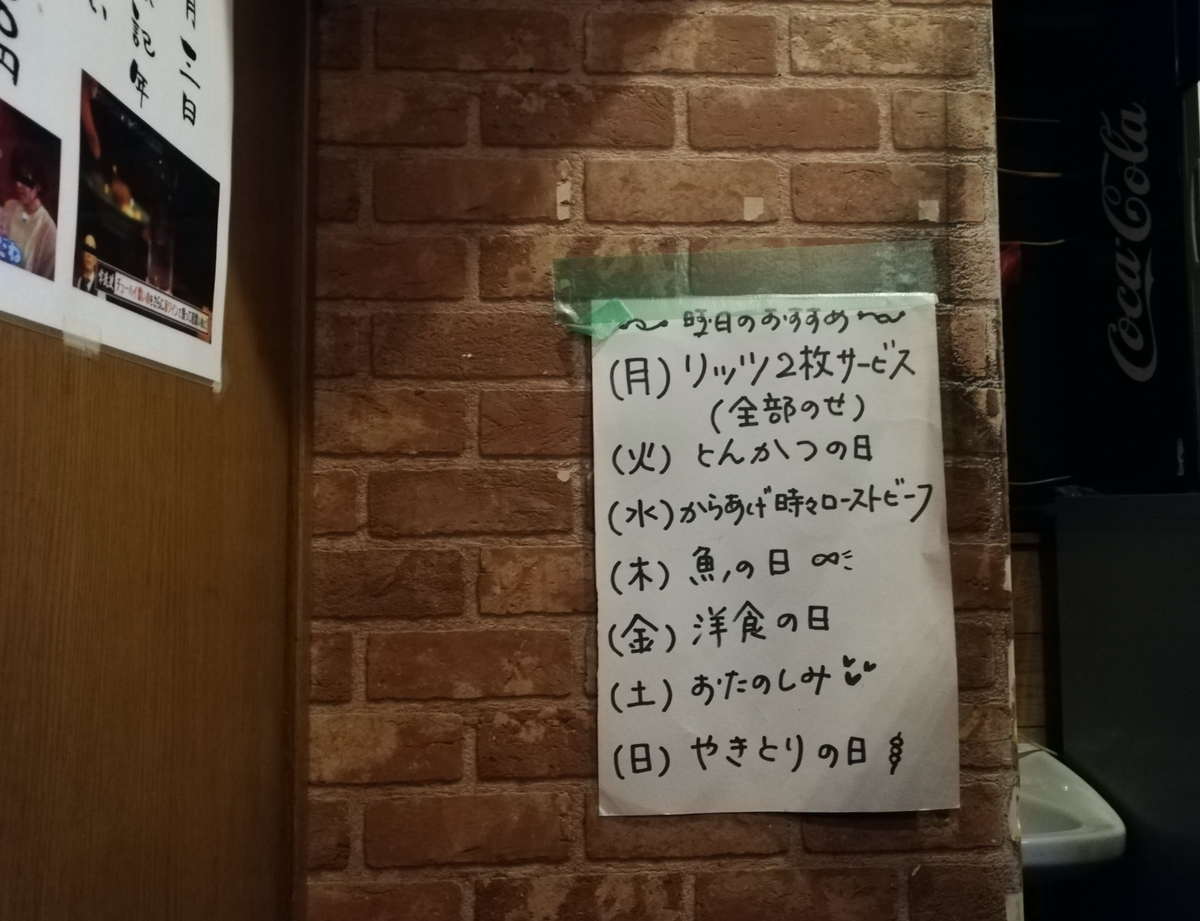 月二日
記年
い
円
〜曜日のおすすめ〜
(月)リッツ2枚サービス
(全部のせ)
(火)とんかつの日
(水)からあげ時々ローストビーフ
(木)魚の日
(金)洋食の日
(土)おたのしみ
(日)やきとりの日
Coca-Cola